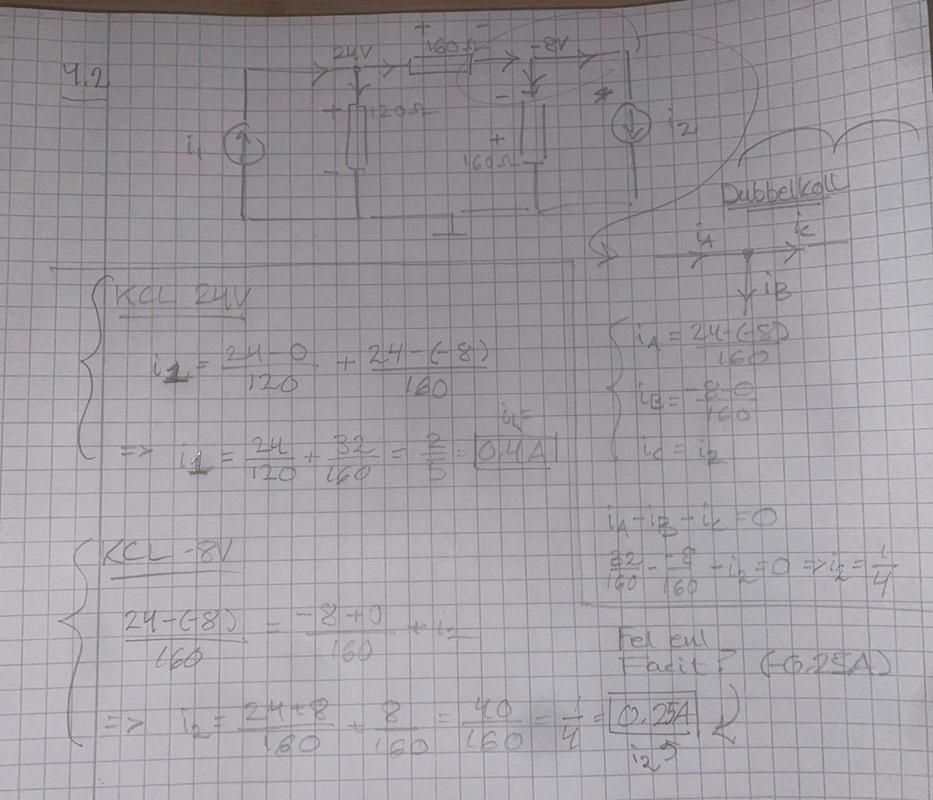 4.2
24V + 160Ω - -8V
i1 + 120Ω - - + 160Ω + i2
Dubbelkoll
iA iC
iB
KCL 24V
i1 = 24-0/120 + 24-(-8)/160
=> i1 = 24/120 + 32/160 = 2/5 = 0,4A
i1=
iA = 24-(-8)/160
iB = -8-0/160
iC = i2
iA - iB - iC = 0
32/160 - -8/160 - i2 = 0 => i2 = 1/4
KCL -8V
24-(-8)/160 = -8+0/160 + i2
=> i2 = 24+8/160 + 8/160 = 40/160 = 1/4 = 0.25A
i2
Fel enl
Facit? (-0.25A)